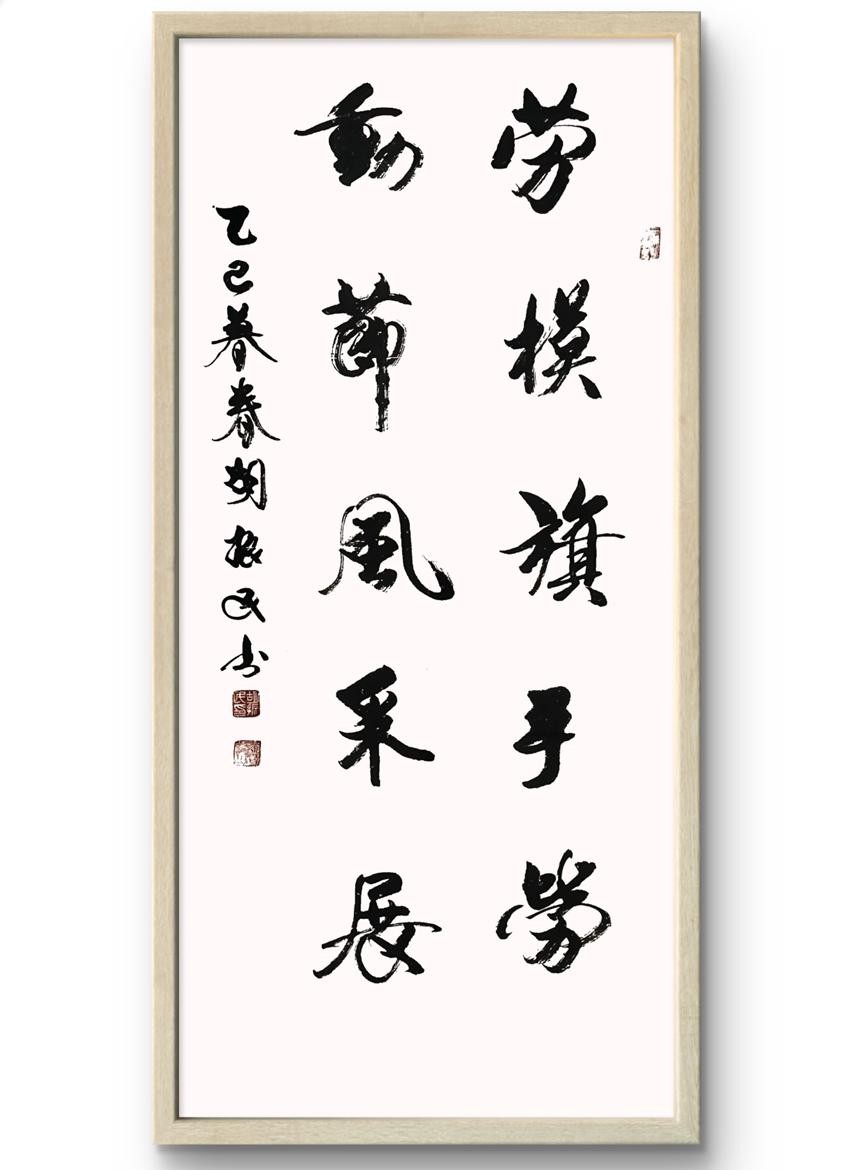 劳模旗手勞
動節風采展
乙巳暮春胡振民书